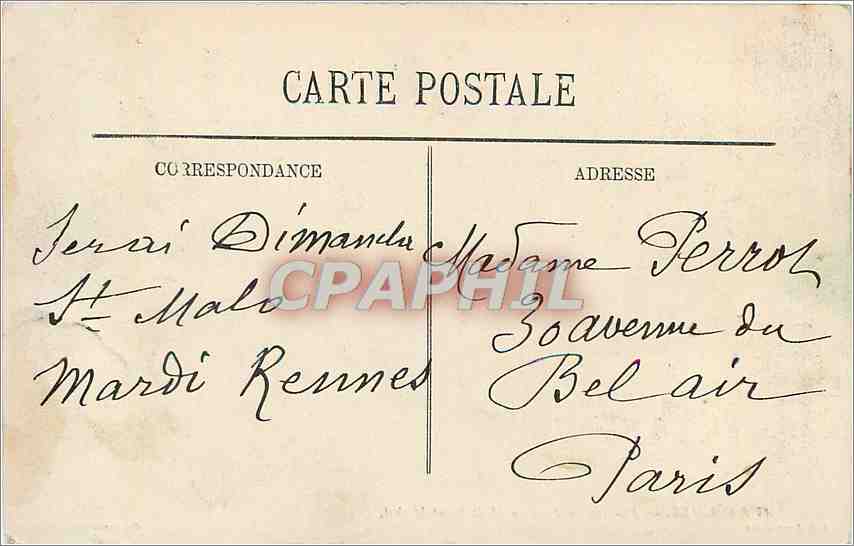 CARTE POSTALE
CORRESPONDANCE
ADRESSE
Serai Dimanche
St Malo
Mardi Rennes
Madame Perrot
30 avenue du
Bel air
Paris
CPAPHIL